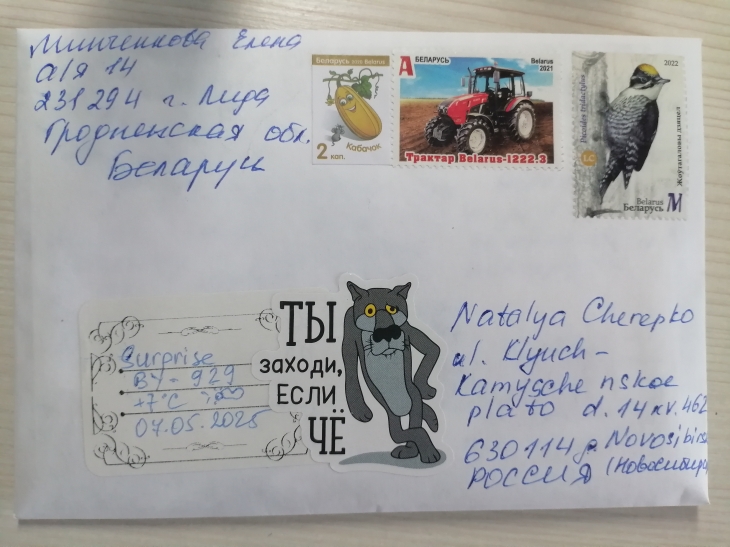 Минченкова Елена
а/я 14
231294 г. Лида
Гродненская обл.
Беларусь
Беларусь 2008 Belarus
Кабачок
2 коп.
A БЕЛАРУСЬ
Belarus
2021
Трактар Belarus-1222.3
2022
Picoides tridactylus
Жоўтагаловы дзяцел
Belarus
Беларусь M
Surprise
BY-929
+7°C
07.05.2025
ТЫ
заходи,
Если
ЧЁ
Natalya Cherepko
ul. Klyuch-
Kamyschenskoe
plato d. 14 kv. 462
630114 g. Novosibirsk
РОССИЯ (Новосибирск